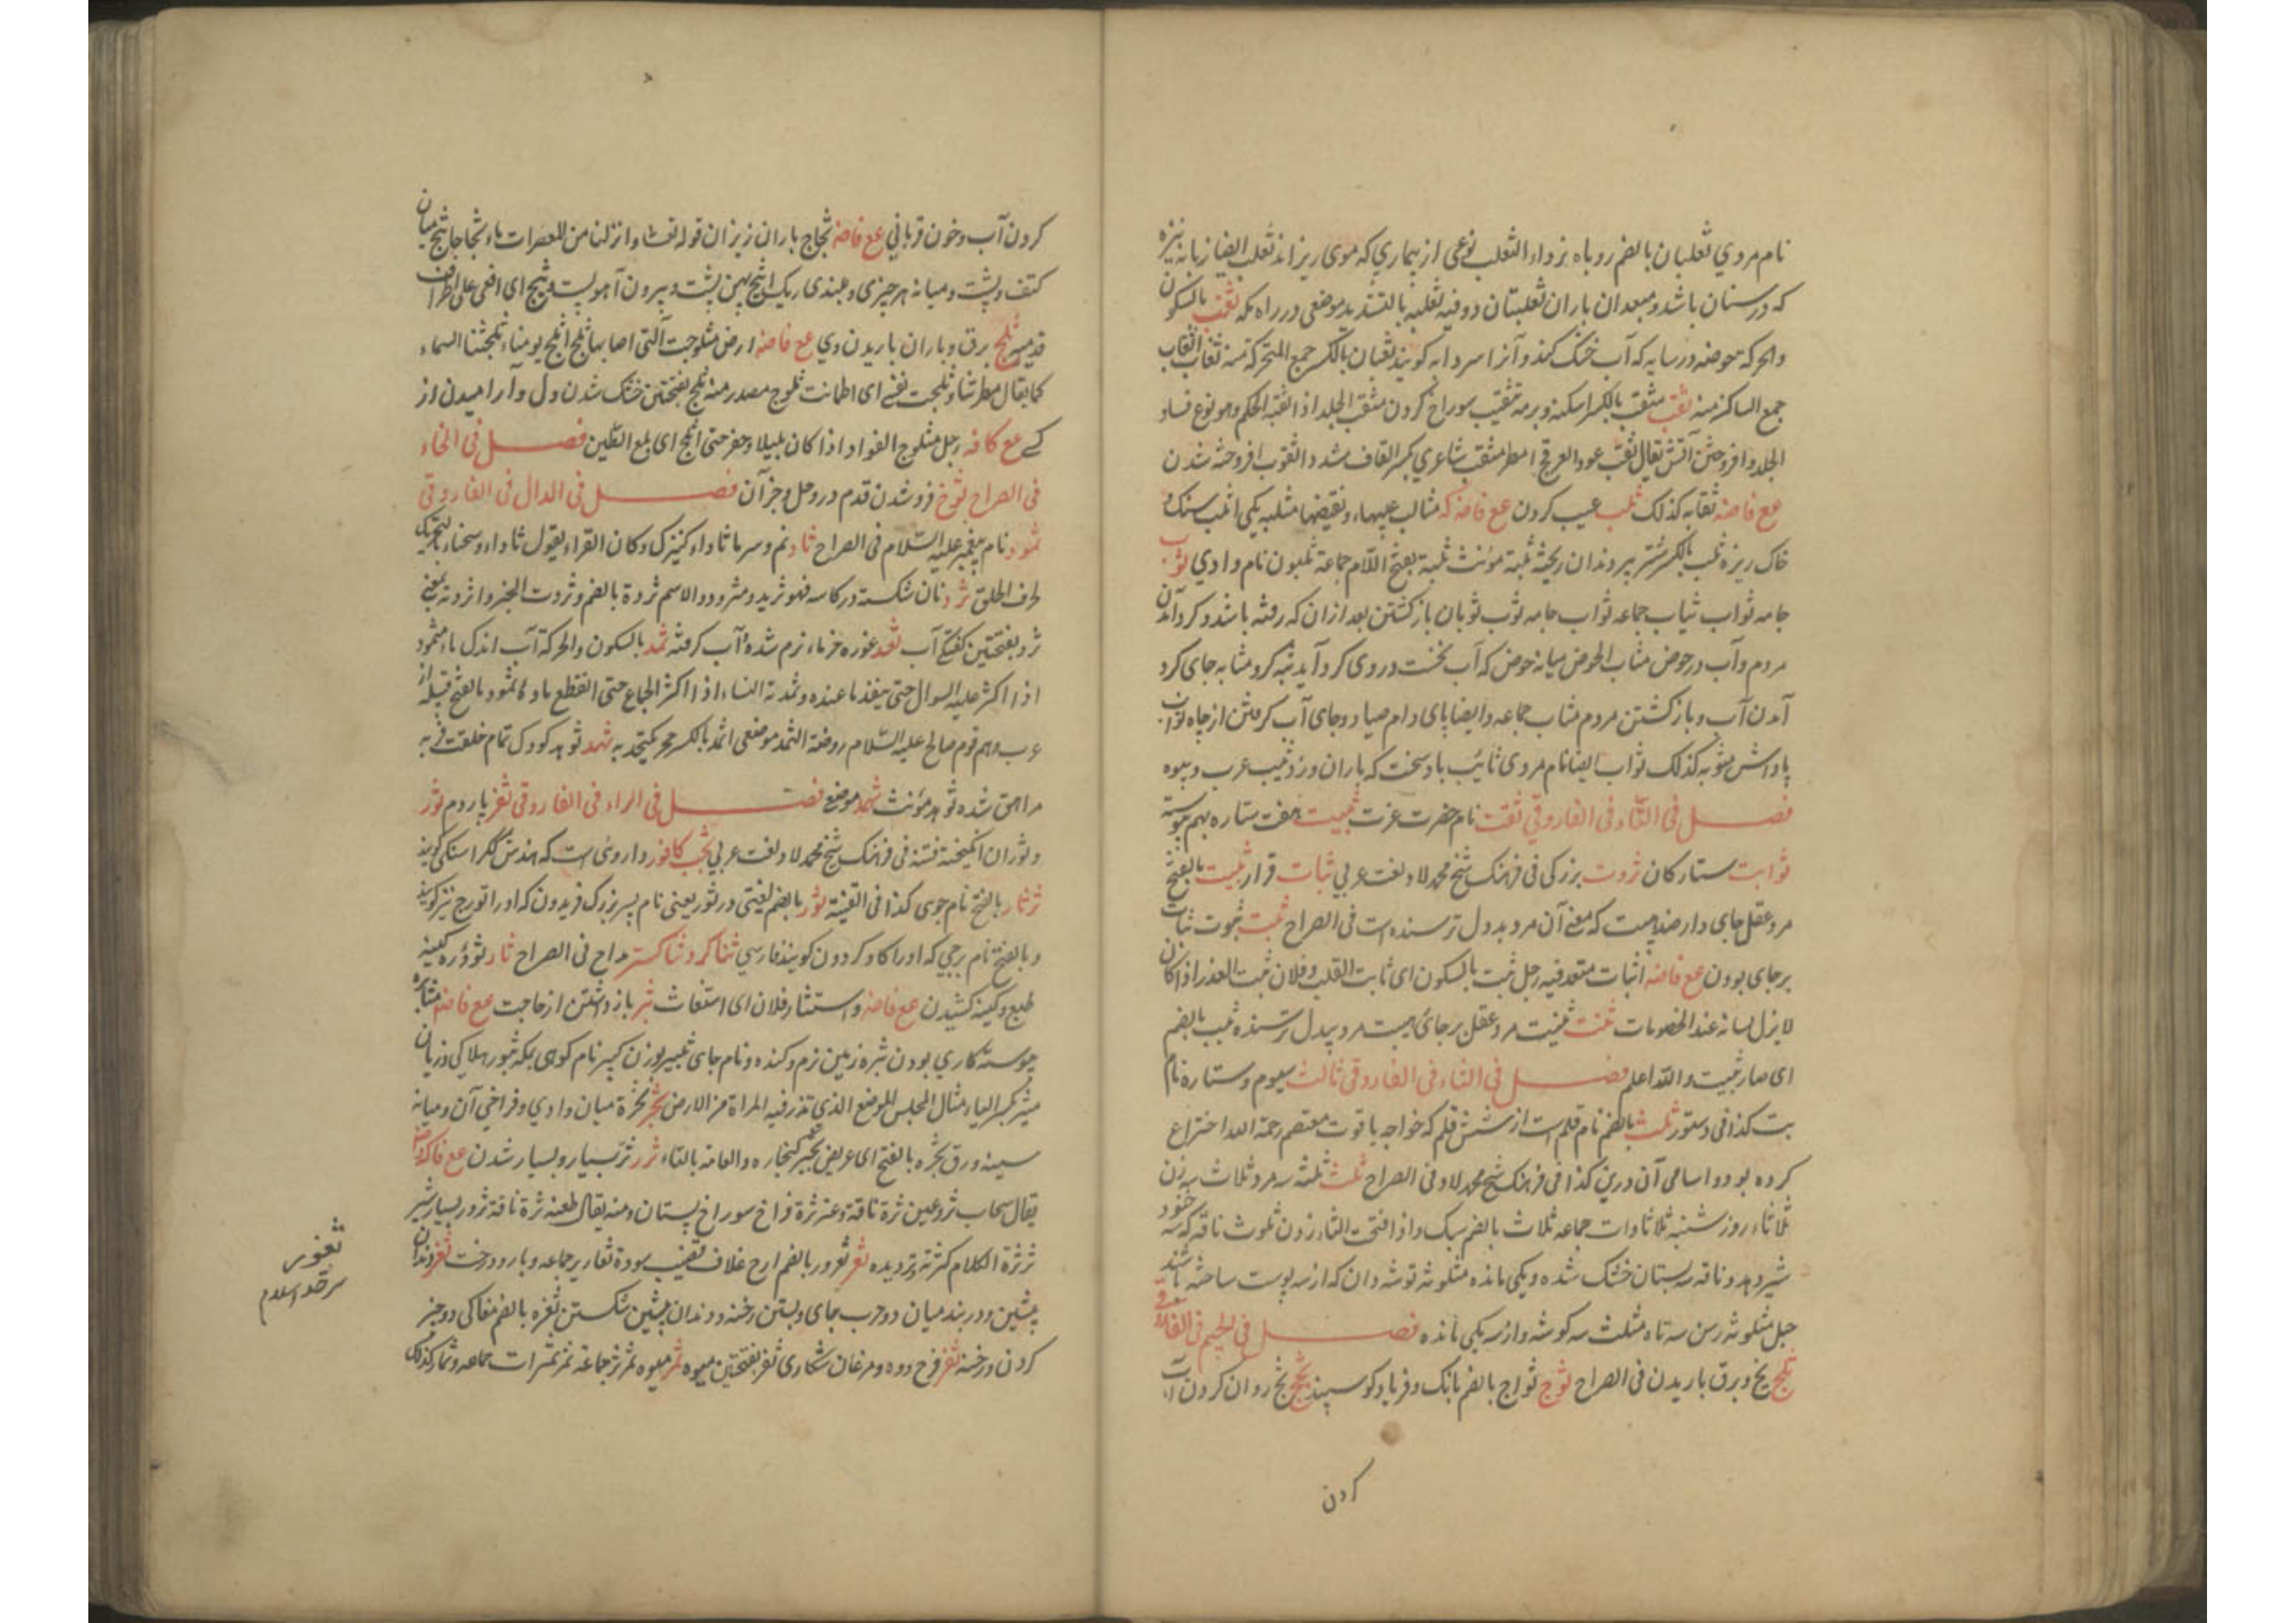 نام مردی ثعلبان بالضم روباه نر داء الثعلب نوعی از بیماری که موی ریزاند ثعلب ایضا زبانه نیزه
که در سنان باشد و بعد ان باران ثعلبتان دو فیه ثعلبه بالتشدید موضعی در راه مکه ثغب بالسکون
والحرکة حوضه در سایه که آب خنک کند و آنرا سردابه کویند ثغبان بالکسر جمع المتحرکة منه ثغاب اثغاب
جمع الساکنة منه ثقب مثقب بالکسر اسکنه و برمه تثقیب سوراخ کردن مثقب الجلد اذا ثقبه الحکم وهو نوع فساد
الجلد و افروختن آتش یقال ثقب عود العرفج امطر مثقب شاعری بکسر القاف مشدد ا ثقوب افروخته شدن
مع فاضه ثقابه کذلک ثلب عیب کردن مع فاضه که مثالب عیبهاء و نقیضها مثلبه یکی اثلب سنک و
خاک ریزه ثلب بالکسر شتر پیر دندان ریخته ثلبة مؤنث ثلبة بفتح اللام جماعة ثلبون نام وادی ثوب
جامه ثواب ثیاب جماعه ثواب جامه ثوب ثوبان باز کشتن بعد ازان که رفته باشد و کرد آمدن
مردم و آب در حوض مثاب الحوض میانه حوض که آب نخست در وی کرد آید ثبه کرد مثابه جای کرد
آمدن آب و باز کشتن مردم مثاب جماعه و ایضا پای دام صیاد و جای آب کرفتن از چاه ثواب
پاداش مثوبه کذلک ثواب ایضا نام مردی ثائب باد سخت که باران ورزد ثیب عرب و بیوه
فصل فی التاء فی الفاروقی ثقت نام حضرت عزت ثبیت هفت ستاره بهم پیوسته
ثوابت ستارکان ثروت بزرکی فی فرهنک شیخ محمد لاد لغت عربی ثبات قرار ثبیت بالفتح
مرد عقل جای دار ضد بیست که معنی آن مرد بددل ترسنده است فی الصراح ثبت ثبوت ثبات
برجای بودن مع فاضه اثبات متعد فیه رجل ثبت بالسکون ای ثابت القلب و فلان ثبت الغدر اذا کان
لایزل لسانه عند الخصومات ثبت ثبیت مرد عقل بر جای هیبت مرد بیدل ترسنده ثبیت بالضم
ای صار ثبیت والله اعلم فصل فی الثاء فی الفاروقی ثالث سیوم و ستاره نام
بت کذا فی دستور ثلث بالضم نام قلمی است از شش قلم که خواجه یاقوت معتصم رحمة الله اختراع
کرده بود و اسامی آن درین کذا فی فرهنک شیخ محمد لاد فی الصراح ثلث ثلثه سه مرد ثلاث سه زن
ثلاثاء روز سشنبه ثلاثاوات جماعه ثلاث بالضم سه یک و اذا فتحت الثاء زدن ثلوث ناقه که سه خنور
شیر دهد و ناقه سه پستان خشک شده و یکی مانده مثلوثه توشه دان که از سه پوست ساخته باشند
حبل مثلوثه رسن سه تاه مثلث سه کوشه و از سه یکی مانده فصل فی الجیم فی الفاروقی
ثلج یخ و برق باریدن فی الصراح ثوج ثواج بالضم بانک و فریاد کوسپند ثج ثج روان کردن آب
کردن
کردن آب و خون قربانی مع فاضه ثجاج باران ریزان قوله تعالی وانزلنا من المعصرات ماء ثجاجا ثبج میان
کتف و پشت و میانه هر چیزی و بلندی ریک اثبج پهن پشت و بیرون آمده پشت و ثبج ای اقعی علی اطراف
قدمیه ثلج برق و باران باریدن وی مع فاضه ارض مثلوجة التی اصابها ثلج اثلج یومنا و ثلجتنا السماء
کما یقال مطرتنا و ثلجت نفسی ای اطمانت ثلوج مصدر منه ثلج بفتحتین خنک شدن دل و آرامیدن از
کسی مع کافه رجل مثلوج الفواد اذا کان بلیدا و حفر حتی اثلج ای بلغ الطین فصل فی الخاء
فی الصراح ثوخ فرو شدن قدم در وحل و جز آن فصل فی الدال فی الفاروقی
ثمود نام پیغمبر علیه السلام فی الصراح ثاد نم و سرما ثاداء کنیزک و کان الفراء یقول ثاداء و سحناء بالتحریک
لحرف الحلق ثرد نان شکستن در کاسه فهو ثرید و مثرود والاسم ثردة بالضم و ثردت الخبز و اثردته بمعنی
ثرد بفتحتین کفتکی آب ثعد غوره خرماء نرم شده آب کرفته ثمد بالسکون والحرکة آب اندک ماء مثمود
اذا اکثر علیه السوال حتی ینفد ما عنده و ثمدته النساء اذا اکثر الجماع حتی انقطع ماءه ثمود بالفتح قبیله از
عرب و هم قوم صالح علیه السلام روضة الثمد موضعی اثمد بالکسر حجر یکتحل به ثهد ثوهد کودک تمام خلقت فربه
مراهق شده ثوهده مؤنث ثهمد موضع فصل فی الراء فی الفاروقی ثفر پاردم ثور
و ثوران انکیخته فتنه فی فرهنک شیخ محمد لاد لغت عربی ثجب کافور داروئی است که هندش ککراسنکی کویند
ثرثار بالفتح نام جوی کذا فی القنیة ثور بالضم لغتی در تور یعنی نام پسر بزرک فریدون که اورا تورج نیز کویند
و بالفتح نام برجی که اورا کاو کردون کویند فارسی ثناکر و ثناکستر مداح فی الصراح ثار ثؤره کینه
طبع و کینه کشیدن مع فاضه و استثار فلان ای استغاث ثبر باز داشتن از حاجت مع فاضه مثابره
پیوسته کاری بودن ثبره زمین نرم و کنده و نام جای ثبیر بوزن کبیر نام کوهی بمکه ثبور هلاکی و زیان
مثبر بکسر الباء مثال المجلس الموضع الذی تلد فیه المراة من الارض ثجر ثجرة میان وادی و فراخی آن و میانه
سینه ورق ثجره بالفتح ای عریض ثجیر کنجاره والعامه بالتاء ثرر ثر بسیار و بسیار شدن مع فاکه
یقال سحاب ثر و عین ثرة ناقة و عنز ثرة فراخ سوراخ پستان و منه یقال طعنة ثرة ناقة ثرور بسیار شیر
ثرثرة الکلام کثرته و تردیده ثعر ثعرور بالضم
پیشین و دربند میان دو حرب جای و بستن رخنه و دندان پیشین شکستن ثغره بالضم مغاکی دو چنبر
کردن و رخنه ثفر فرج دده و مرغان شکاری ثفر بفتحتین میوه ثمر میوه ثمرة جماعة ثمر ثمرات جماعه و ثمار کذلک
ثغور
سرحد اسلام